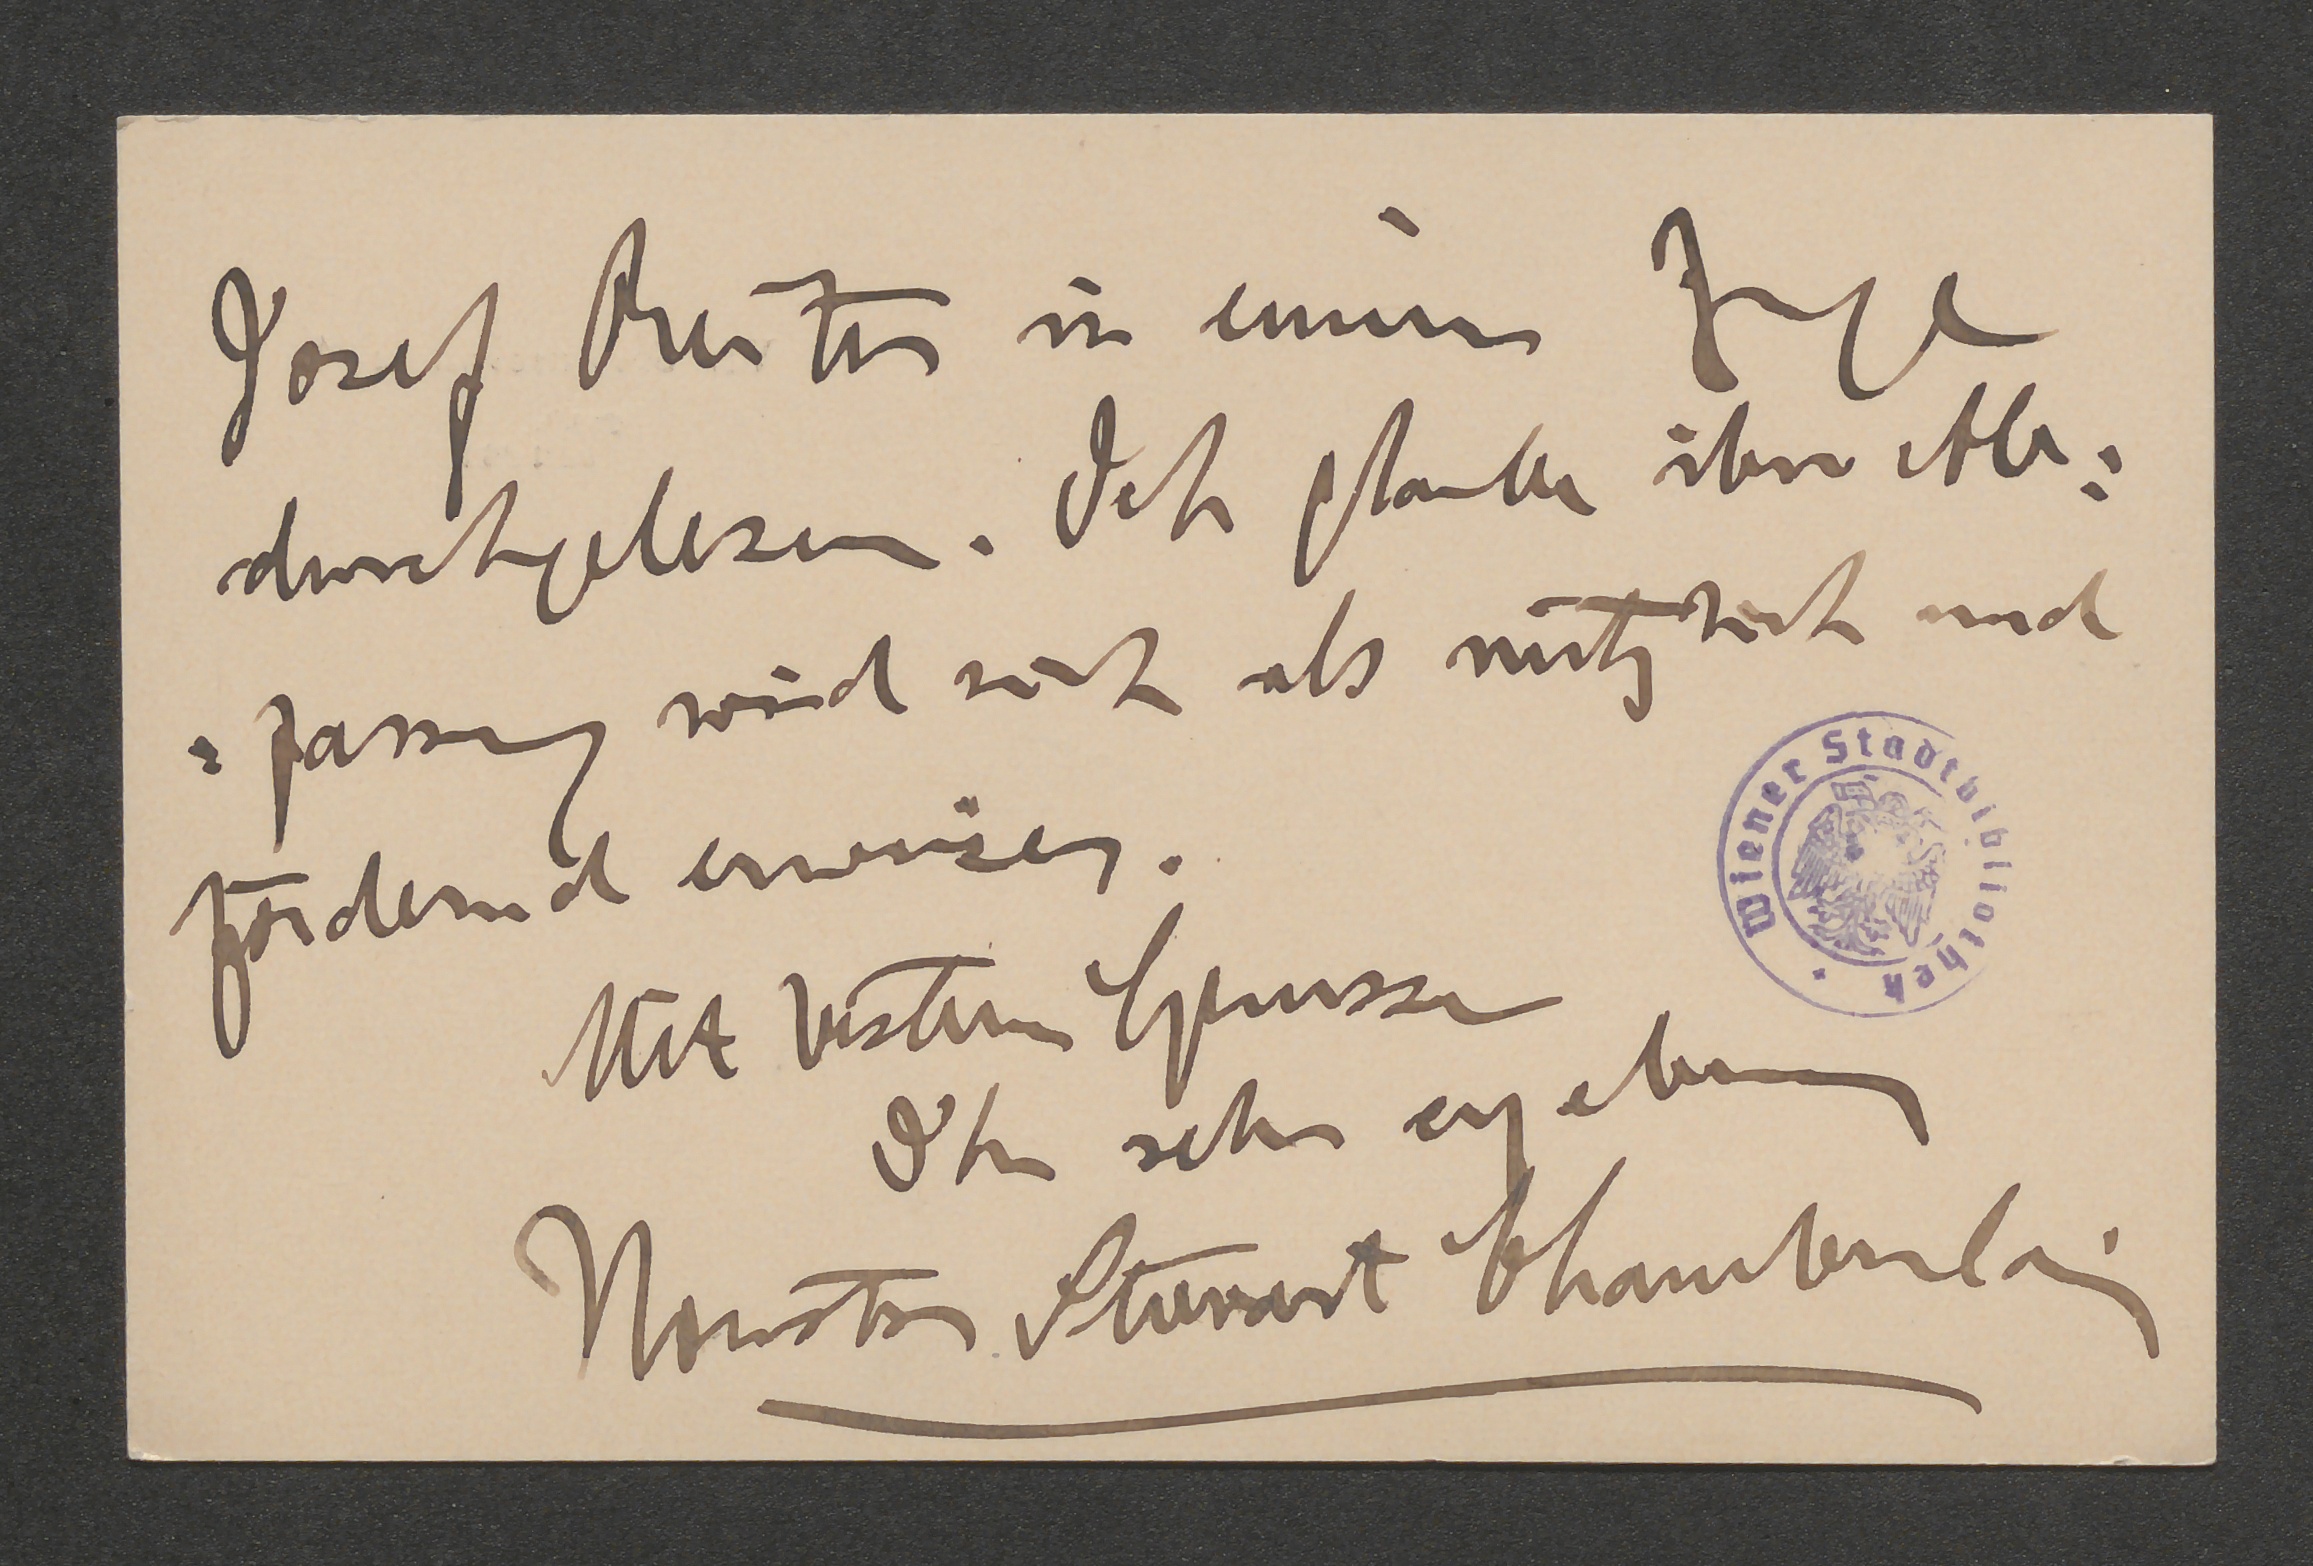 Josef Reiter in einem Zuge
durchgelesen. Ich glaube ihre Ab=
=fassung wird sich als nützlich und
fördernd erweisen.
Mit besten Grüssen
Ihr sehr ergebener
Houston Stewart Chamberlain
Wiener Stadtbibliothek